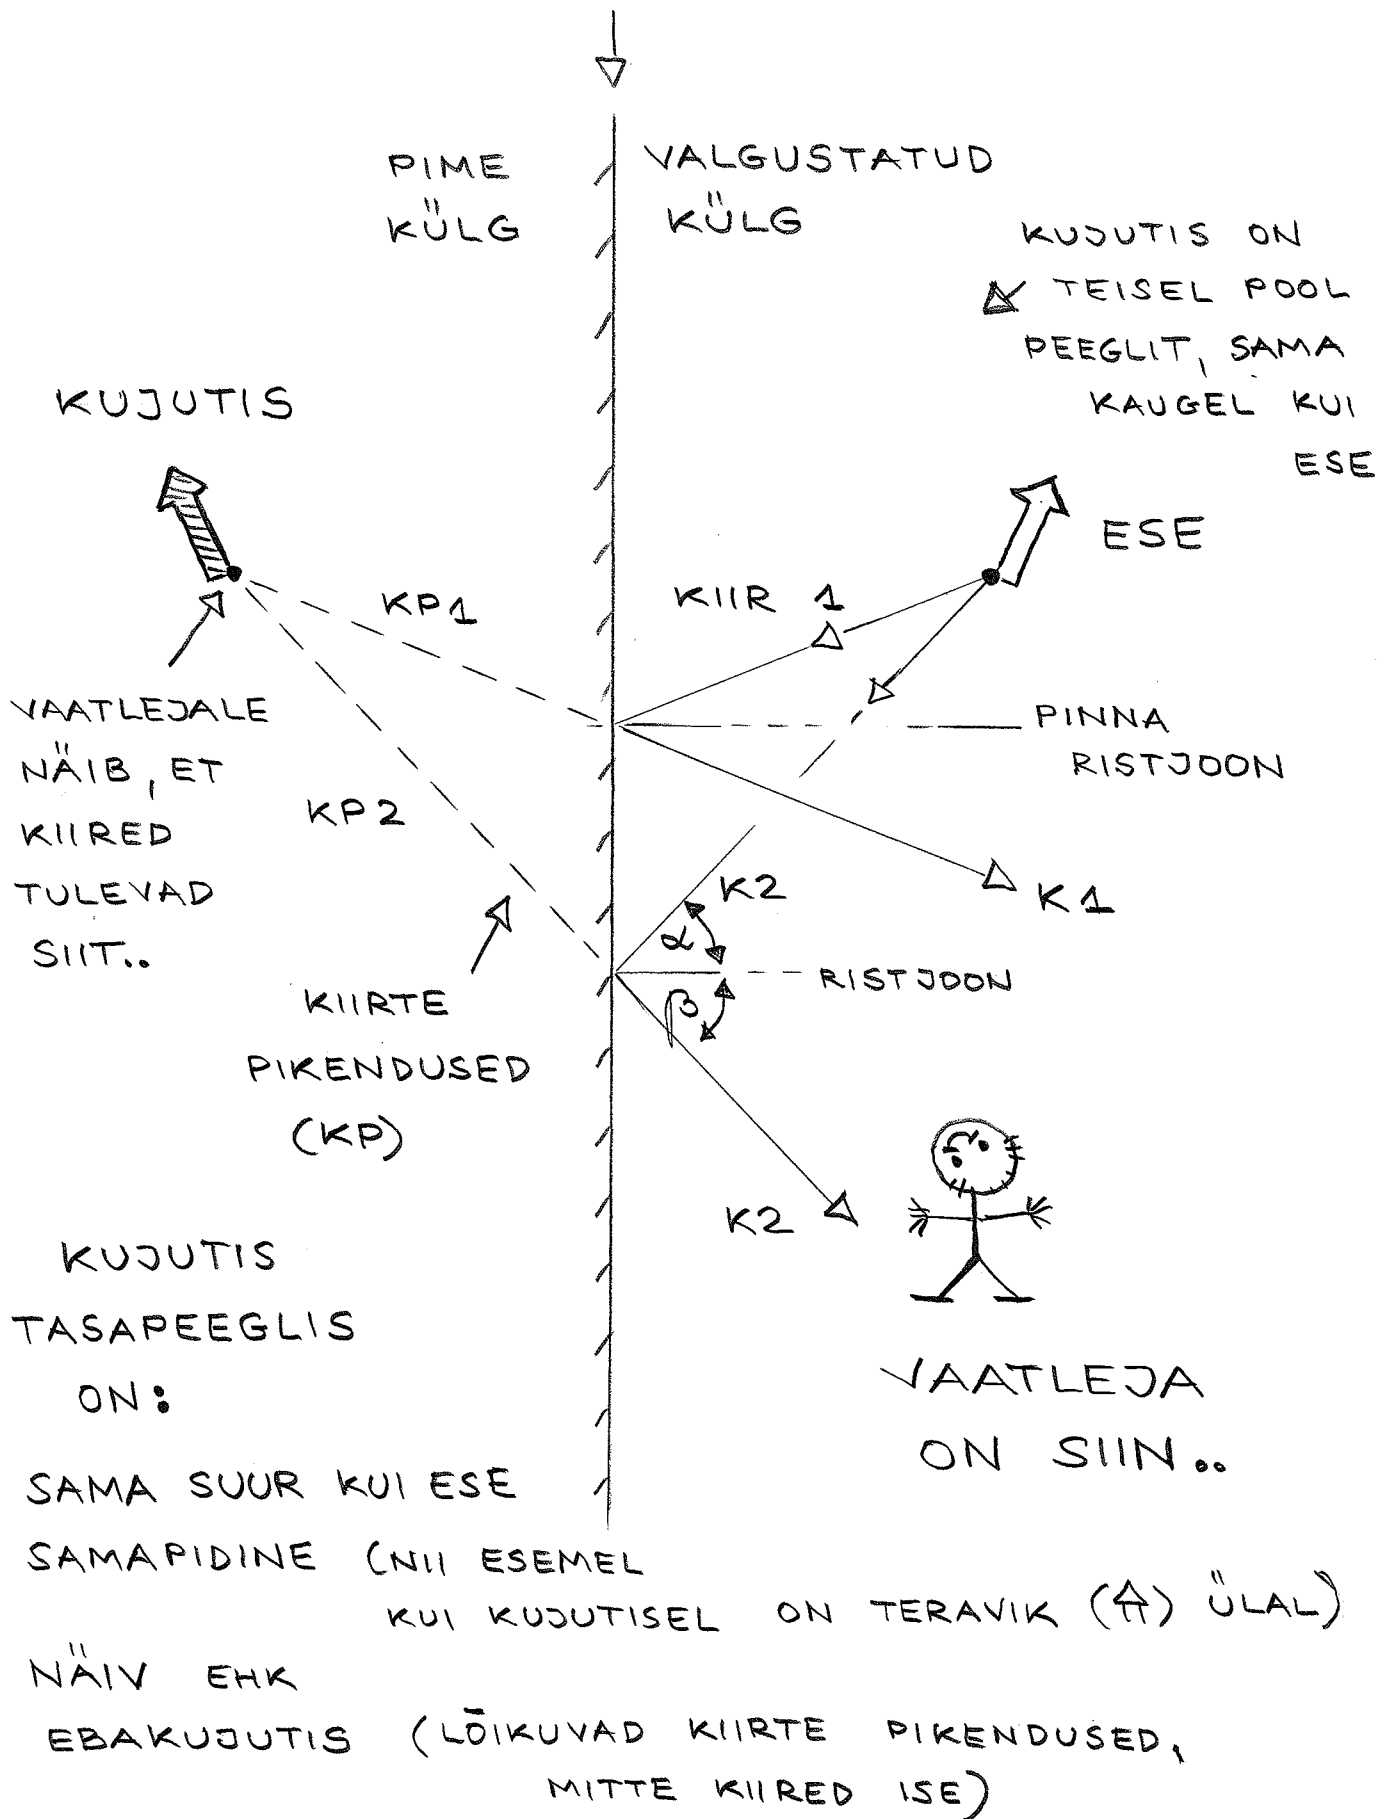 PIME
KÜLG
VALGUSTATUD
KÜLG
KUJUTIS ON
TEISEL POOL
PEEGLIT, SAMA
KAUGEL KUI
ESE
KUJUTIS
ESE
KP1
KIIR 1
VAATLEJALE
NÄIB, ET
KIIRED
TULEVAD
SIIT..
PINNA
RISTJOON
KP2
K2
K1
α
RISTJOON
β
KIIRTE
PIKENDUSED
(KP)
K2
KUJUTIS
TASAPEEGLIS
ON:
VAATLEJA
ON SIIN..
SAMA SUUR KUI ESE
SAMAPIDINE (NII ESEMEL
KUI KUJUTISEL ON TERAVIK (⇧) ÜLAL)
NÄIV EHK
EBAKUJUTIS (LÕIKUVAD KIIRTE PIKENDUSED,
MITTE KIIRED ISE)